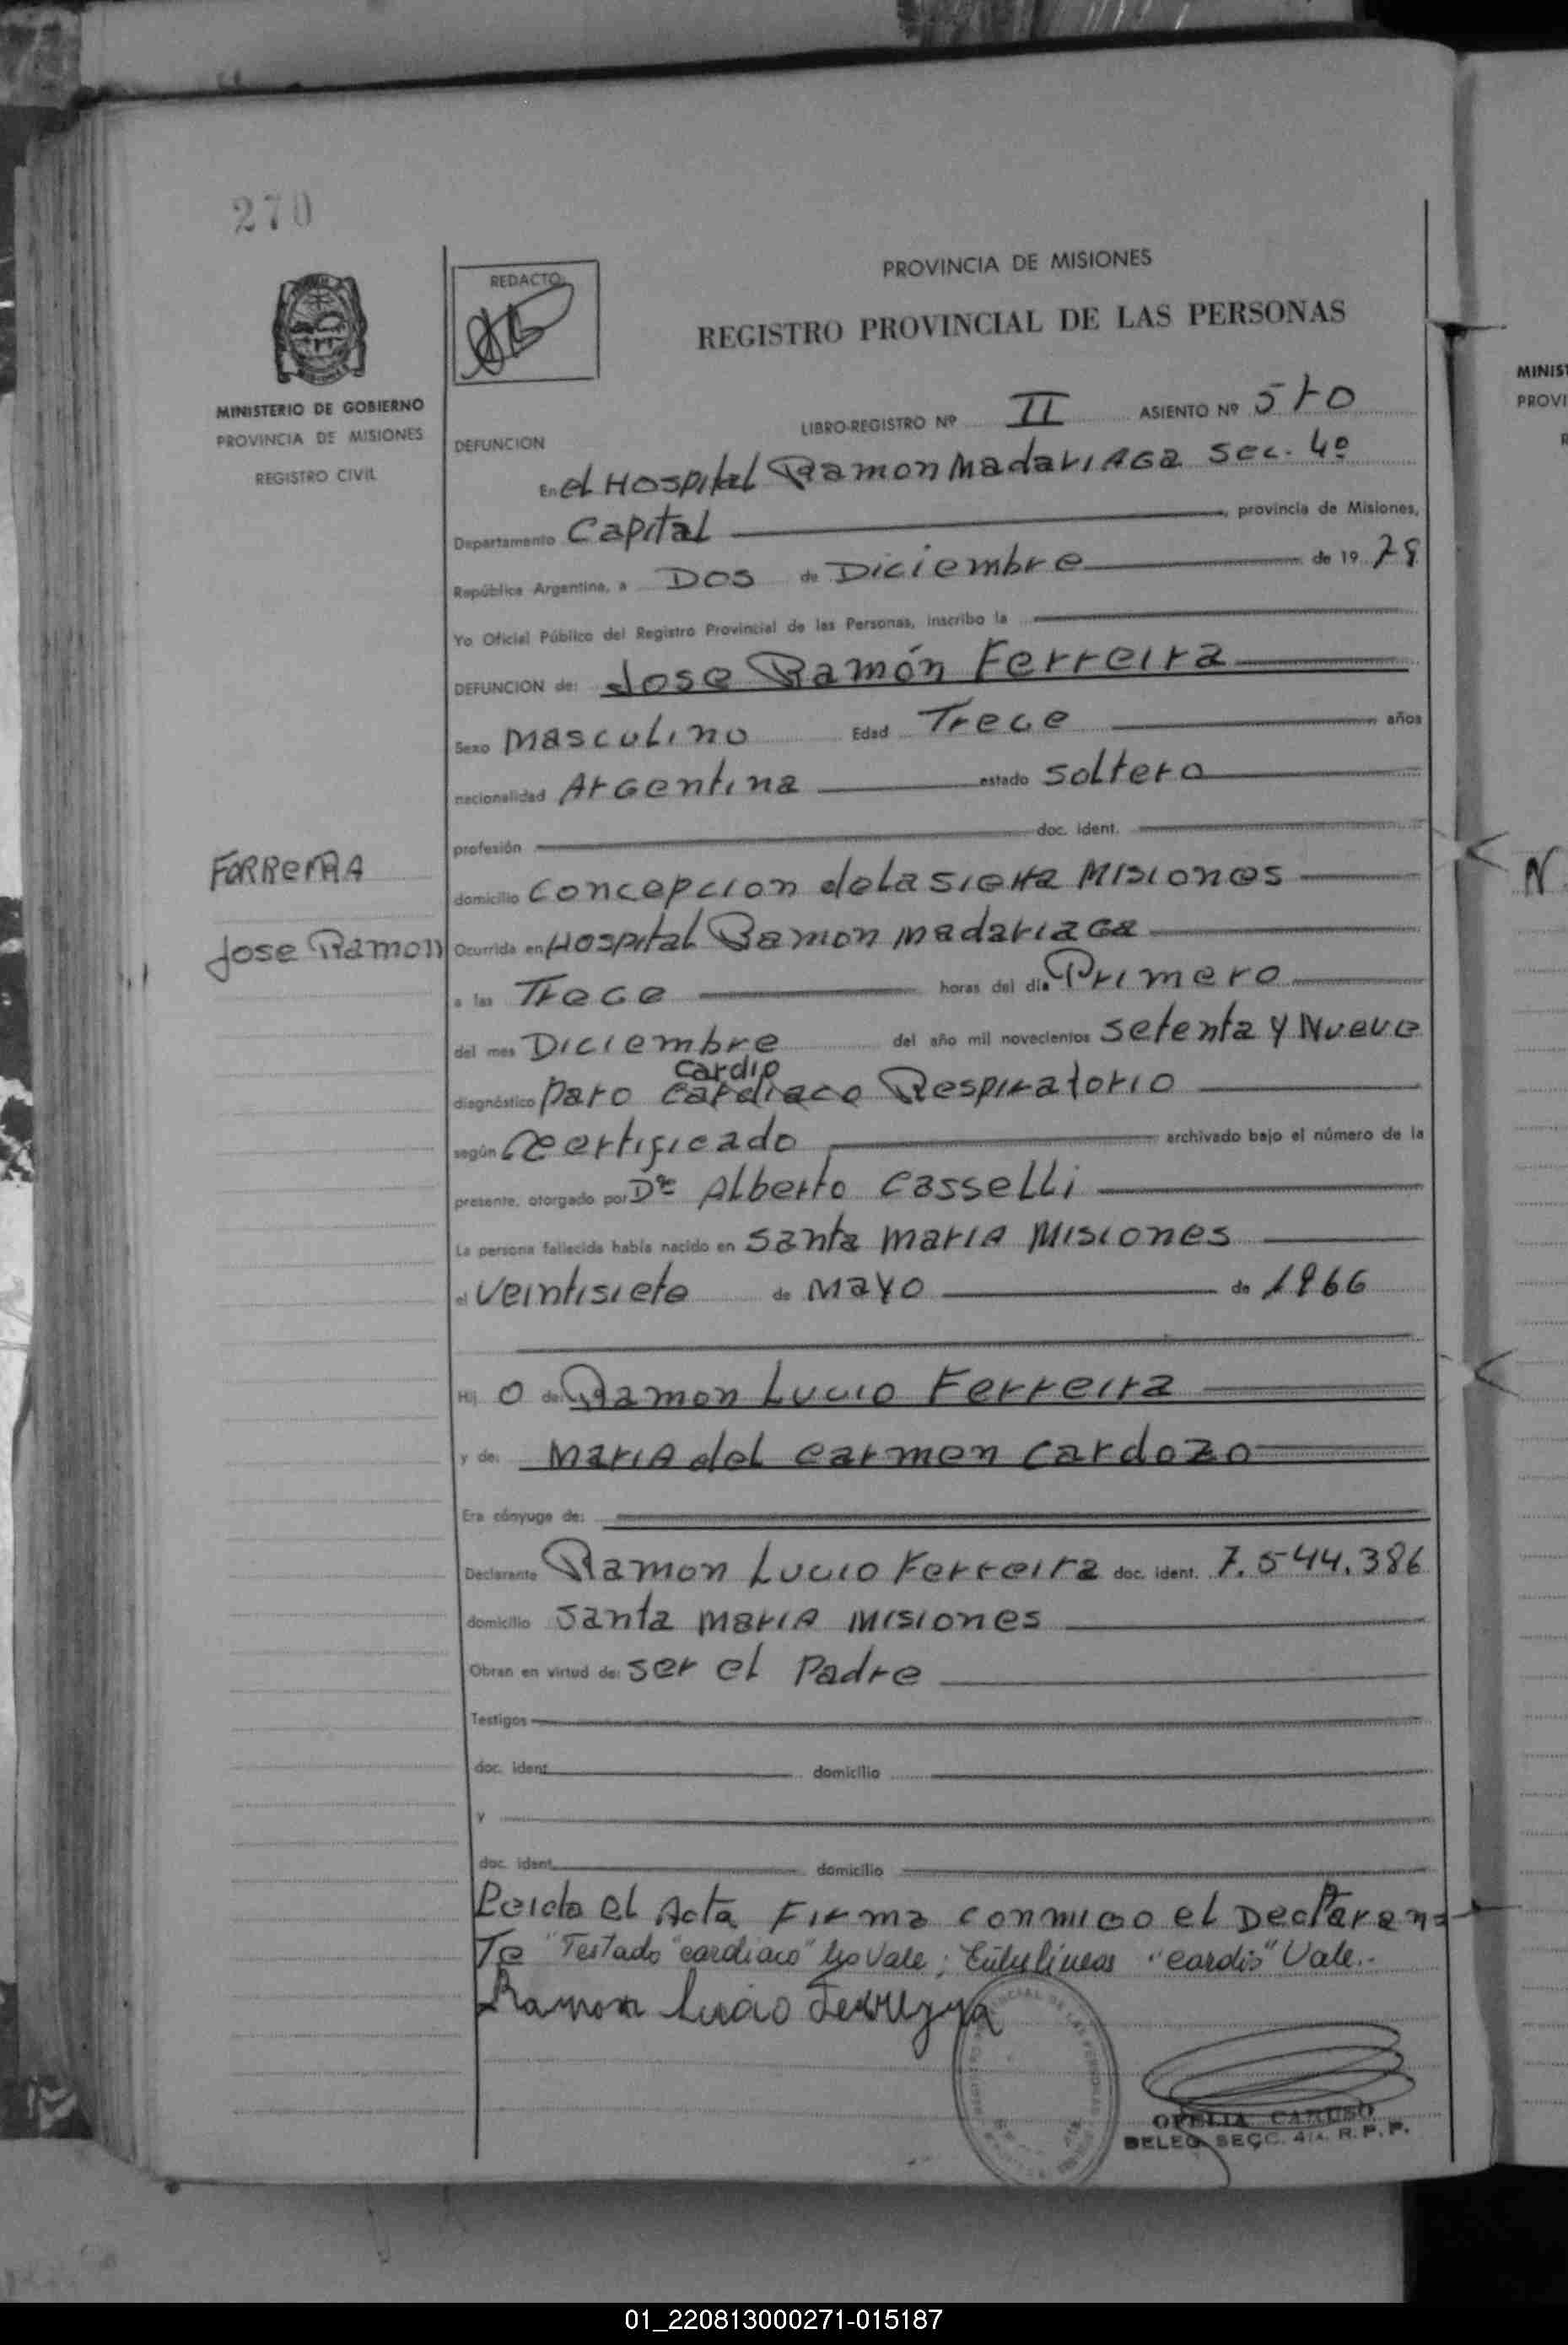 270
REDACTO:
PROVINCIA DE MISIONES
REGISTRO PROVINCIAL DE LAS PERSONAS
MINISTERIO DE GOBIERNO
PROVINCIA DE MISIONES
REGISTRO CIVIL
DEFUNCION LIBRO-REGISTRO Nº II ASIENTO Nº 570
En el Hospital Ramon Madariaga Sec. 4º
Departamento Capital, provincia de Misiones,
República Argentina, a Dos de Diciembre de 19 79
Yo Oficial Público del Registro Provincial de las Personas, inscribo la
DEFUNCION de: Jose Ramón Ferreira
Sexo Masculino Edad Trece años
nacionalidad Argentina estado soltero
profesión doc. ident.
FERREIRA
Jose Ramon
domicilio Concepcion de la Sierra Misiones
Ocurrida en Hospital Ramon Madariaga
a las Trece horas del día Primero
del mes Diciembre del año mil novecientos setenta y Nueve
cardio
diagnóstico paro cardiaco Respiratorio
según certificado archivado bajo el número de la
presente, otorgado por Dr Alberto Casselli
La persona fallecida había nacido en Santa Maria Misiones
el Veintisiete de Mayo de 1966
Hij o de: Ramon Lucio Ferreira
y de: Maria del Carmen Cardozo
Era cónyuge de:
Declarante Ramon Lucio Ferreira doc. ident. 7.544.386
domicilio Santa Maria Misiones
Obran en virtud de: ser el Padre
Testigos
doc. ident. domicilio
y
doc. ident. domicilio
Leida el Acta Firma conmigo el Declaran
Te "Testado "cardiaco" No Vale; Entrelíneas "cardio" Vale.-
Ramon Lucio Ferreyra
OFELIA CARUSO
DELEG. SECC. 4ta. R.P.P.
MINIST
PROVI
R
N
01_220813000271-015187